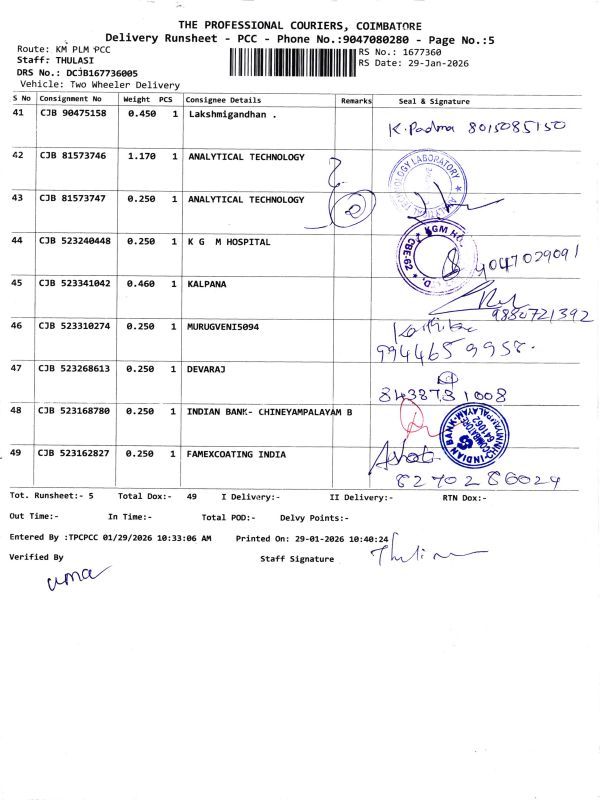 THE PROFESSIONAL COURIERS, COIMBATORE
Delivery Runsheet - PCC - Phone No.:9047080280 - Page No.:5
Route: KM PLM PCC
RS No.: 1677360
Staff: THULASI
RS Date: 29-Jan-2026
DRS No.: DCJB167736005
Vehicle: Two Wheeler Delivery
S No Consignment No Weight PCS Consignee Details Remarks Seal & Signature
41 CJB 90475158 0.450 1 Lakshmigandhan .
K. Padma 8015085150
42 CJB 81573746 1.170 1 ANALYTICAL TECHNOLOGY
ANALYTICAL TECHNOLOGY LABORATORY
43 CJB 81573747 0.250 1 ANALYTICAL TECHNOLOGY
44 CJB 523240448 0.250 1 K G  M HOSPITAL
KGM HO
CBE-62
9047029091
45 CJB 523341042 0.460 1 KALPANA
9880721392
46 CJB 523310274 0.250 1 MURUGVENI5094
9944659958.
47 CJB 523268613 0.250 1 DEVARAJ
8438781008
48 CJB 523168780 0.250 1 INDIAN BANK- CHINEYAMPALAYAM B
INDIAN BANK
COIMBATORE
641062
49 CJB 523162827 0.250 1 FAMEXCOATING INDIA
8270286024
Tot. Runsheet:- 5 Total Dox:- 49 I Delivery:- II Delivery:- RTN Dox:-
Out Time:- In Time:- Total POD:- Delvy Points:-
Entered By :TPCPCC 01/29/2026 10:33:06 AM Printed On: 29-01-2026 10:40:24
Verified By Staff Signature
uma